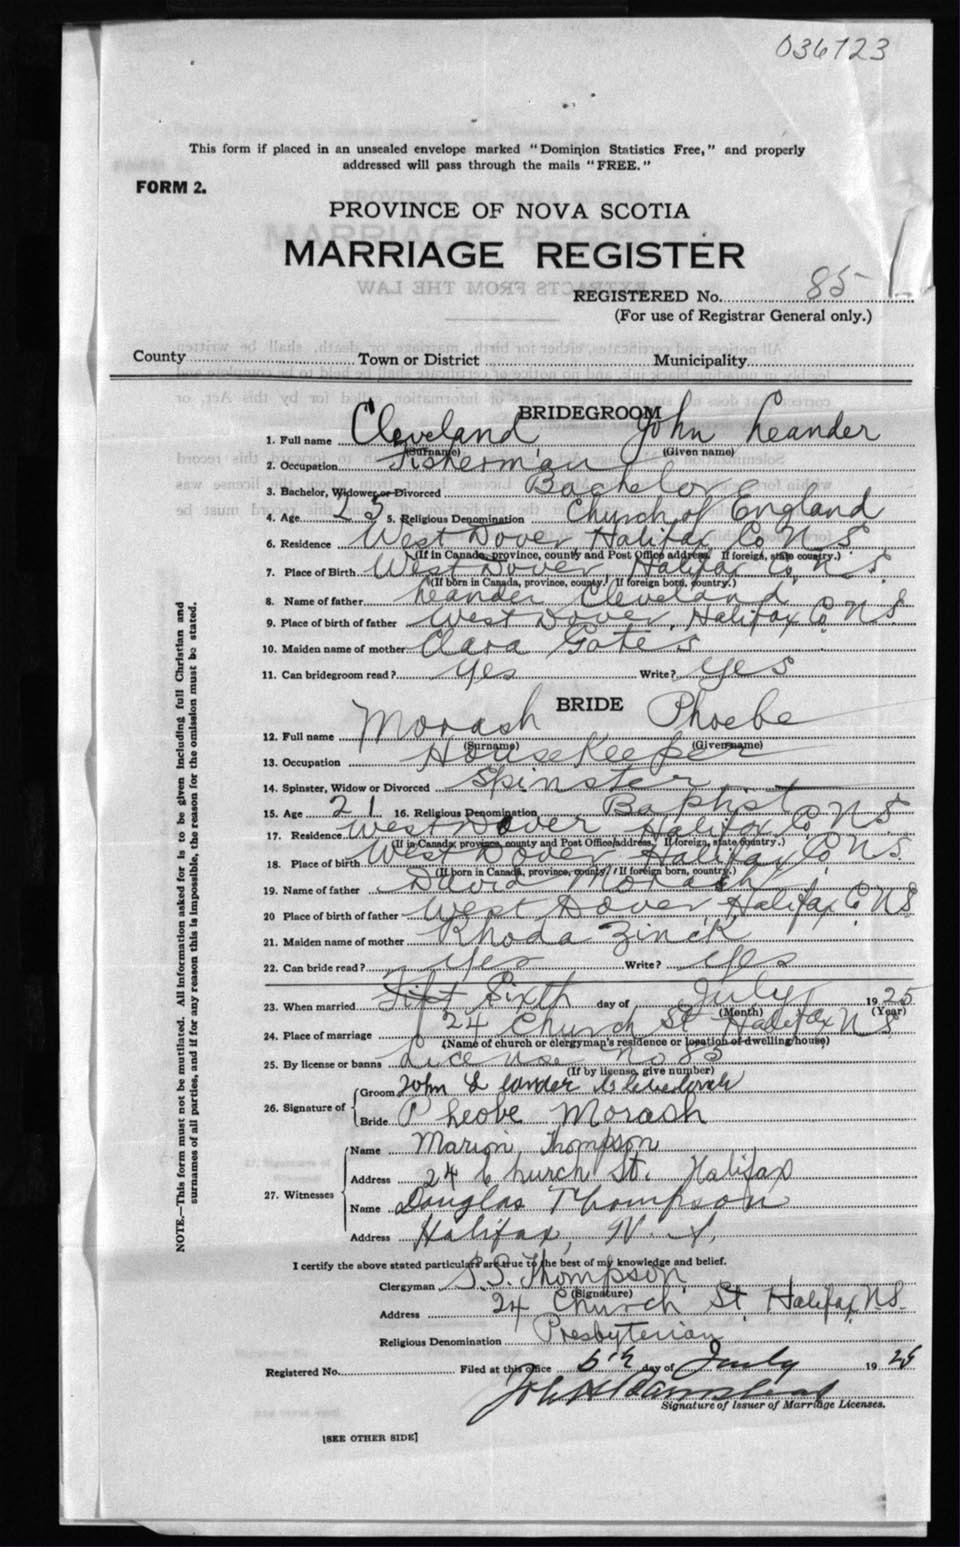 036723
This form if placed in an unsealed envelope marked "Dominion Statistics Free," and properly
addressed will pass through the mails "FREE."
FORM 2.
PROVINCE OF NOVA SCOTIA
MARRIAGE REGISTER
EXTRACTS FROM THE LAW
REGISTERED No. 85
(For use of Registrar General only.)
County Town or District Municipality
BRIDEGROOM
1. Full name Cleveland John Leander
(Surname) (Given name)
2. Occupation Fisherman
3. Bachelor, Widower or Divorced Bachelor
4. Age 25 5. Religious Denomination Church of England
6. Residence West Dover, Halifax Co N S
(If in Canada, province, county and Post Office address. If foreign, state country.)
7. Place of Birth West Dover Halifax Co. N S.
(If born in Canada, province, county. If foreign born, country.)
8. Name of father Leander Cleveland
9. Place of birth of father West Dover, Halifax Co N S
10. Maiden name of mother Clara Gates
11. Can bridegroom read? Yes Write? Yes
BRIDE
12. Full name Morash Phoebe
(Surname) (Given name)
13. Occupation HouseKeeper
14. Spinster, Widow or Divorced Spinster
15. Age 21 16. Religious Denomination Baptist
17. Residence West Dover Halifax Co N S
(If in Canada, province, county and Post Office address. If foreign, state country.)
18. Place of birth West Dover Halifax Co N S.
(If born in Canada, province, county. If foreign born, country.)
19. Name of father David Morash
20 Place of birth of father West Dover, Halifax Co N S
21. Maiden name of mother Rhoda Zinck
22. Can bride read? Yes Write? Yes
23. When married Sixth day of July 1925
(Month) (Year)
24. Place of marriage 24 Church St Halifax N S.
(Name of church or clergyman's residence or location of dwelling house)
25. By license or banns License No 85
(If by license, give number)
26. Signature of
Groom John L
Bride Pheobe Morash
27. Witnesses
Name Marion Thompson
Address 24 Church St. Halifax
Name Douglas Thompson
Address Halifax, N. S.
I certify the above stated particulars are true to the best of my knowledge and belief.
Clergyman S.S. Thompson
(Signature)
Address 24 Church St Halifax N.S.
Religious Denomination Presbyterian
Registered No. Filed at this office 6th day of July 1925
Signature of Issuer of Marriage Licenses.
[SEE OTHER SIDE]
NOTE.—This form must not be mutilated. All information asked for is to be given including full Christian and
surnames of all parties, and if for any reason this is impossible, the reason for the omission must be stated.